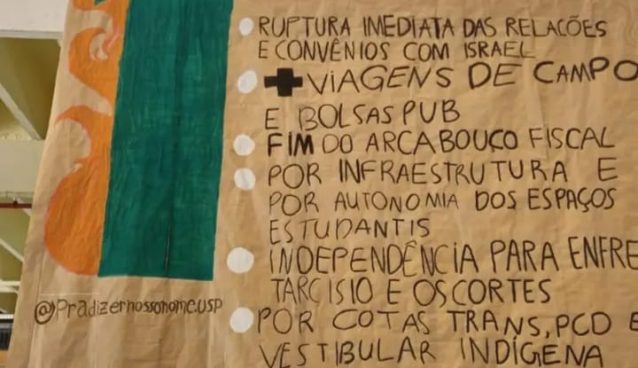 RUPTURA IMEDIATA DAS RELACÕES
E CONVÊNIOS COM ISRAEL
+ VIAGENS DE CAMPO
E BOLSAS PUB
FIM DO ARCABOUCO FISCAL
POR INFRAESTRUTURA E
POR AUTONOMIA DOS ESPAÇOS
ESTUDANTIS
INDEPENDÊNCIA PARA ENFRE
TARCISIO E OS CORTES
@Pradizernossonome.usp
POR COTAS TRANS, PCD E
VESTIBULAR INDÍGENA